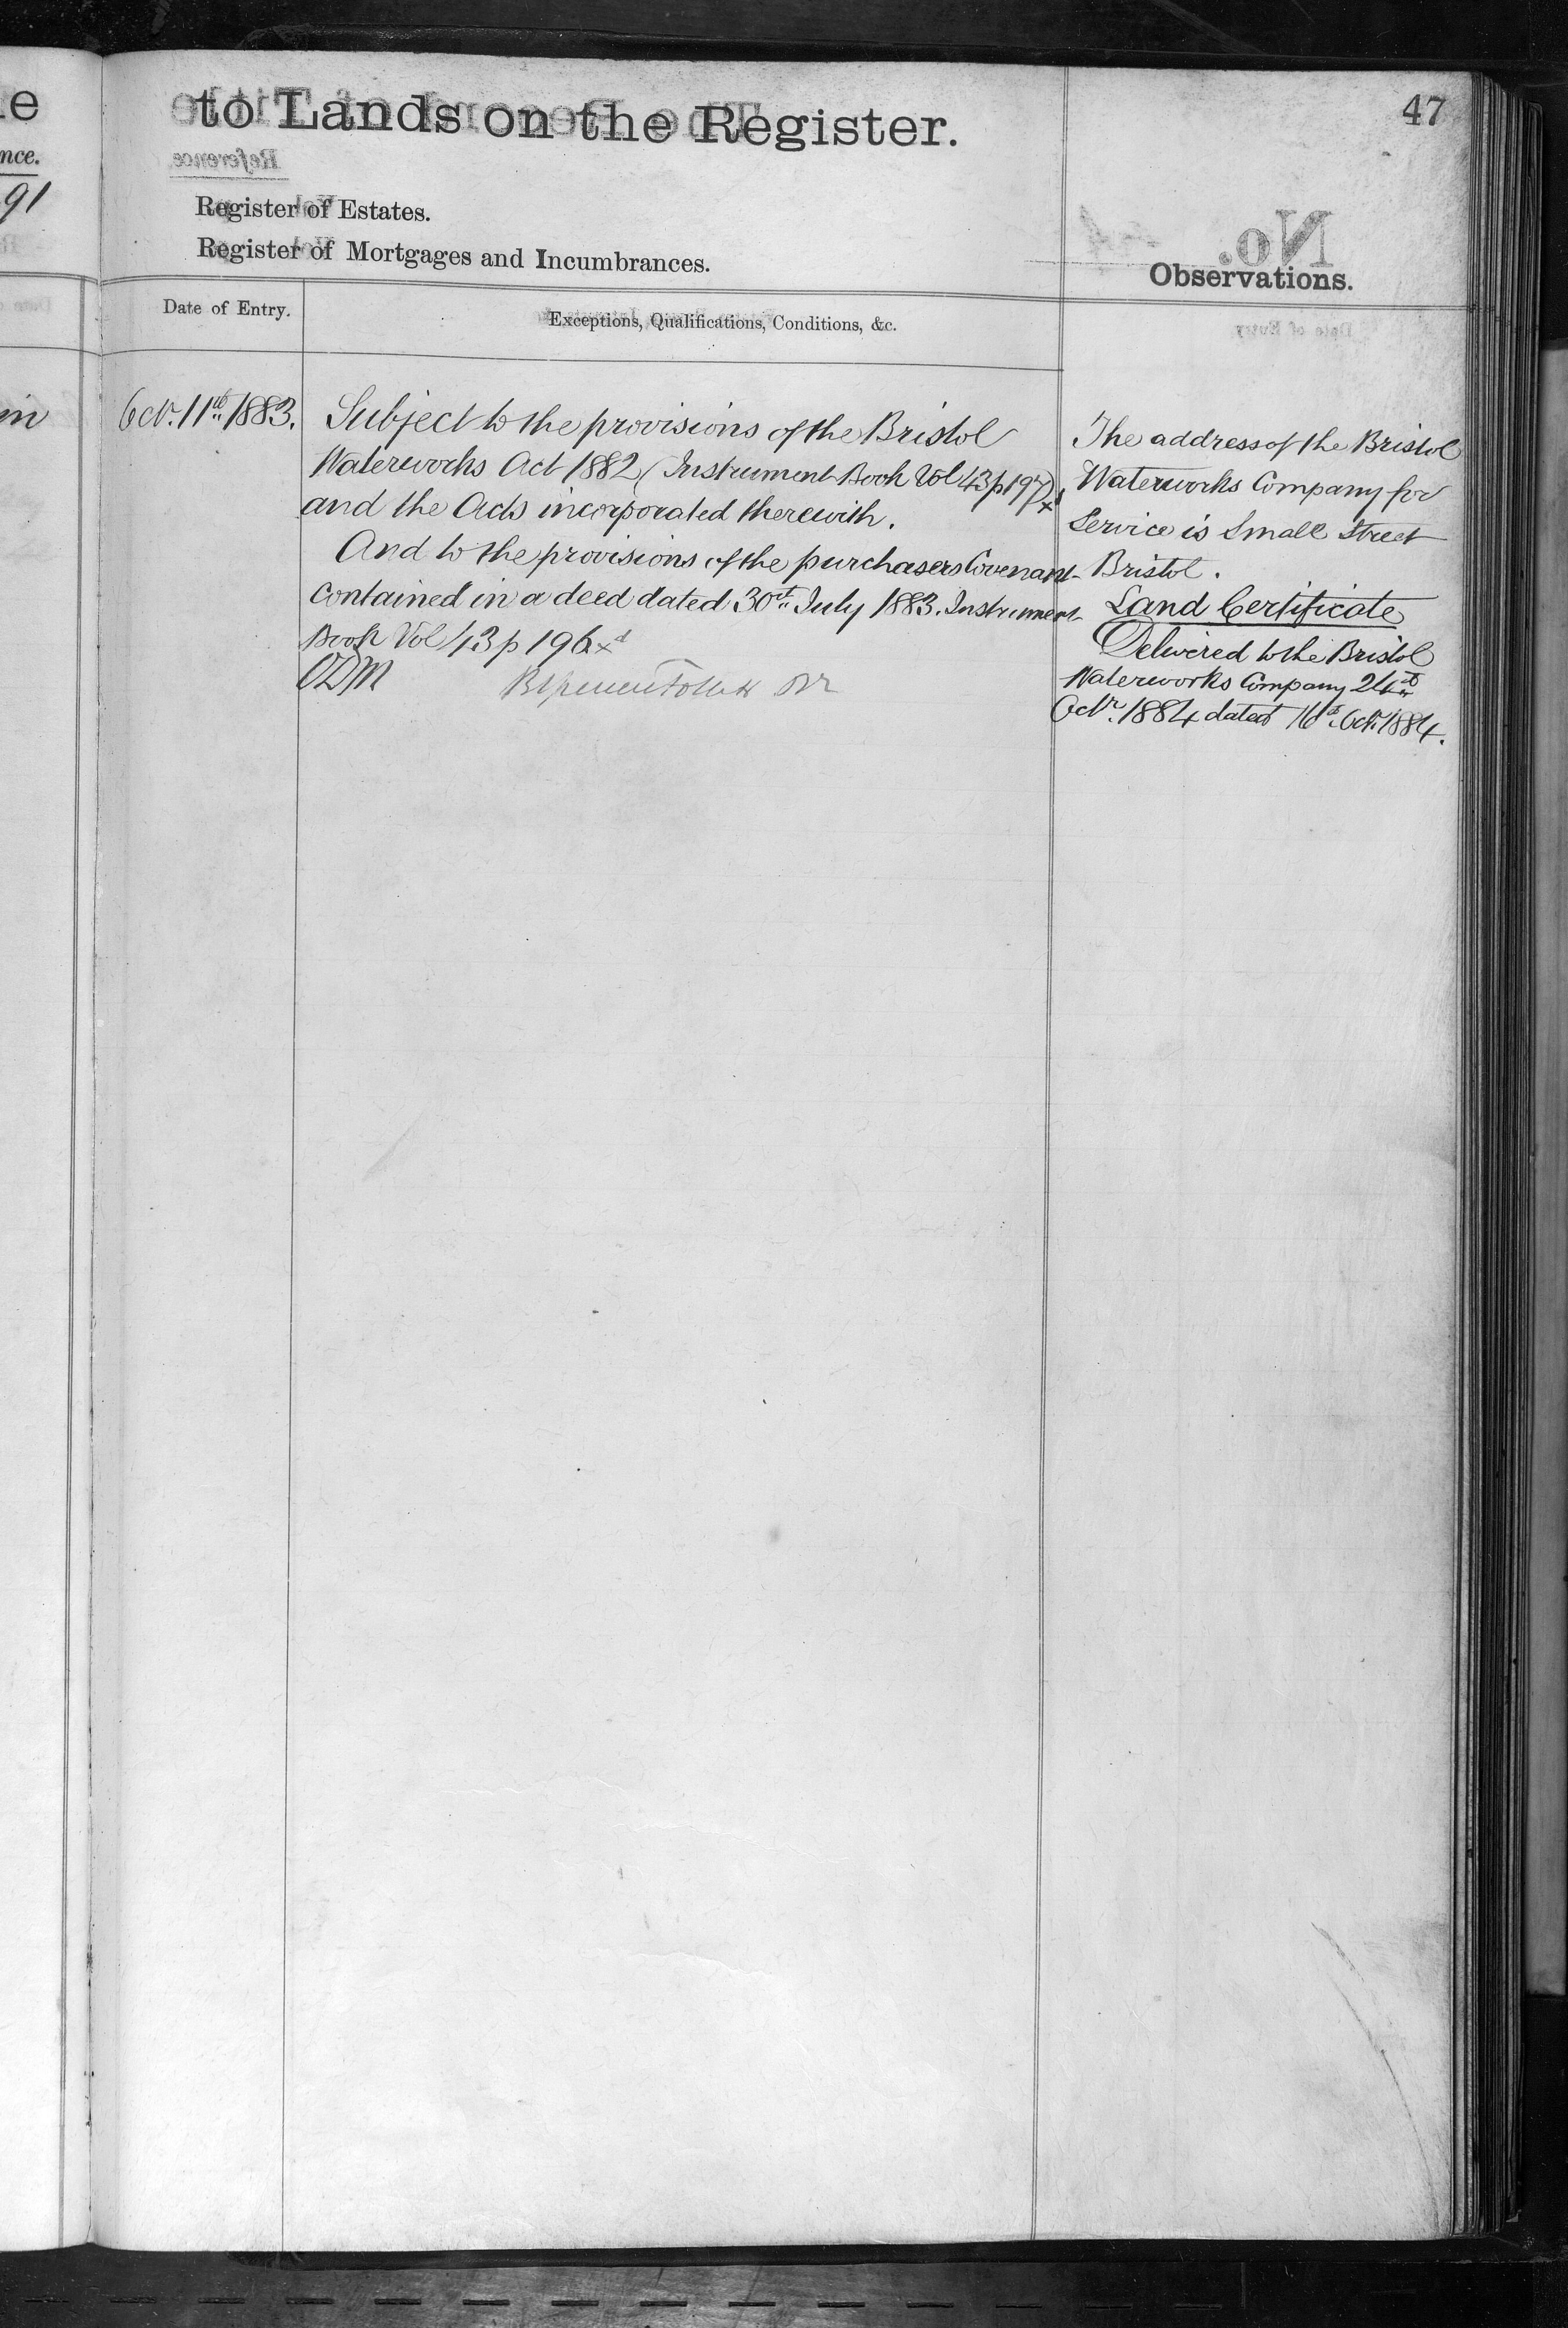 47
to Lands on the Register.
Register of Estates.
Register of Mortgages and Incumbrances.
Observations.
Date of Entry.
Exceptions, Qualifications, Conditions, &c.
Octr. 11th 1883.
Subject to the provisions of the Bristol
Waterworks Act 1882 (Instrument Book Vol 43 p 197)
and the Acts incorporated therewith.
And to the provisions of the purchasers Covenant
contained in a deed dated 30th July 1883. Instrument
Book Vol 43 p 196
ODM
The address of the Bristol
Waterworks Company for
Service is Small Street
Bristol.
Land Certificate
Delivered to the Bristol
Waterworks Company 24th
Octr. 1884 dated 16th Octr. 1884.
e
nce.
91
in